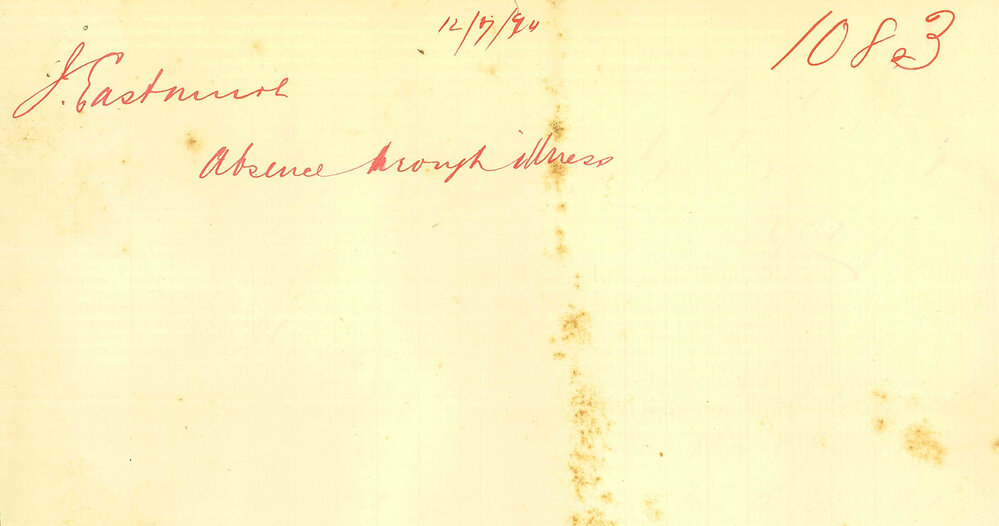 12/7/90
1083
J. Eastmuir
Absence through illness